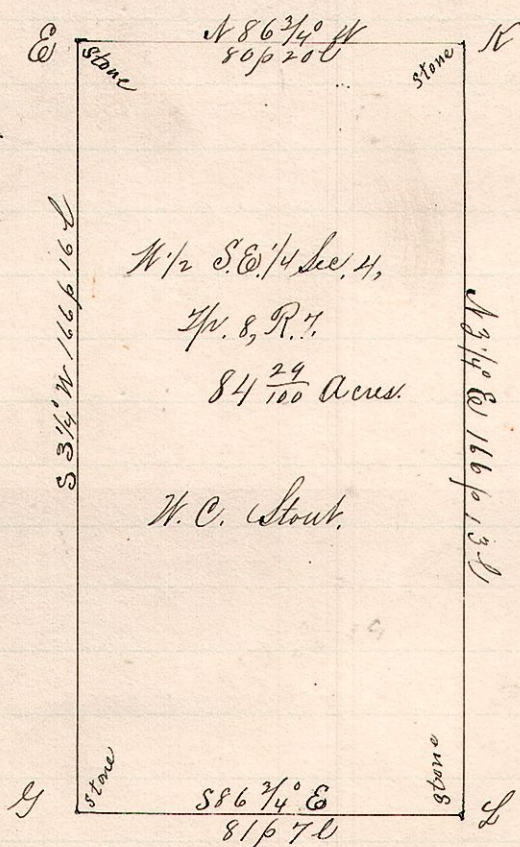 N 86 3/4° W
80p 20l
E
K
stone
stone
S 3 1/4° W 166p 16l
W 1/2 S.E. 1/4 Sec. 4,
Tp. 8, R. 7.
84 29/100 Acres.
N 3 1/4° E 166p 13l
W. C. Stout.
stone
stone
G
S 86 3/4° E
L
81p 7l